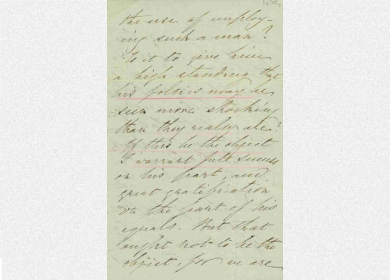 the use of employ-
ing such a man?
Is it to give him
a high standing that
his follies may be
seen more shocking
than they realy are?
If this be the object
I warrant full success
on his part, and
great gratification
on the part of his
equals. But that
ought not to be the
object for we are